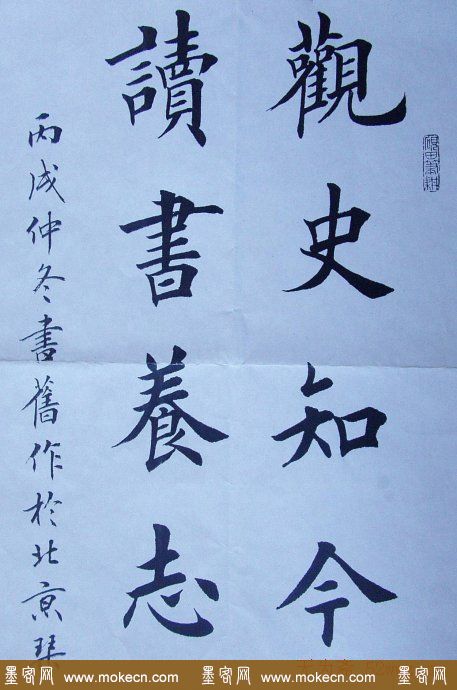 觀史知今
讀書養志
丙戌仲冬書舊作於北京
墨客网 www.mokecn.com 墨客网 www.mokecn.com 墨客网